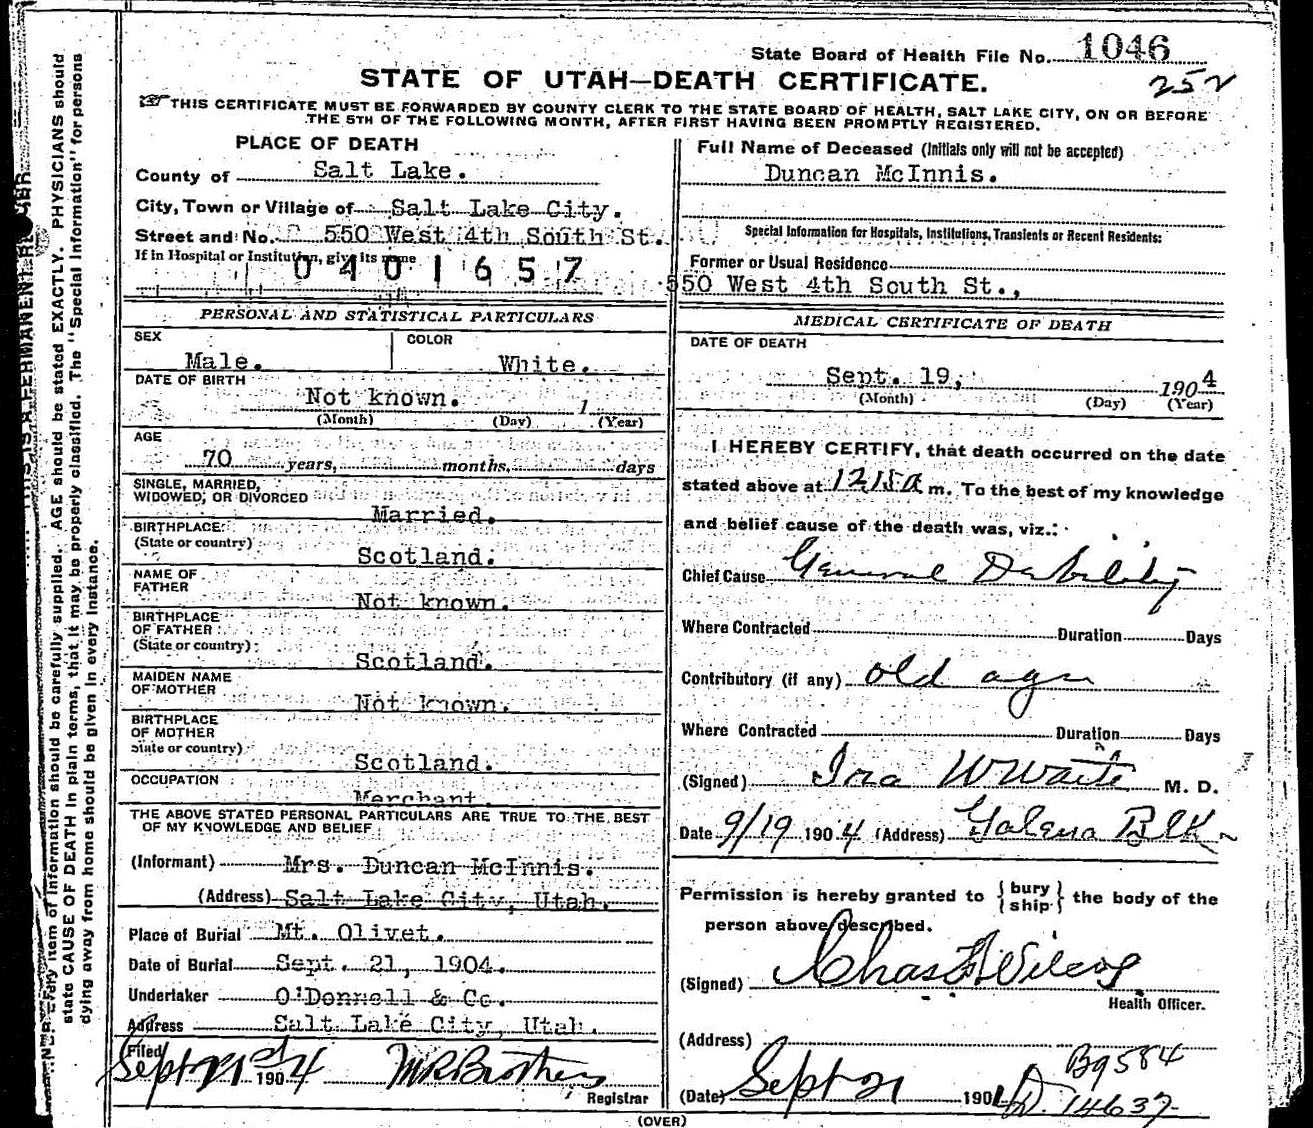 State Board of Health File No. 1046
252
STATE OF UTAH—DEATH CERTIFICATE.
THIS CERTIFICATE MUST BE FORWARDED BY COUNTY CLERK TO THE STATE BOARD OF HEALTH, SALT LAKE CITY, ON OR BEFORE
THE 5TH OF THE FOLLOWING MONTH, AFTER FIRST HAVING BEEN PROMPTLY REGISTERED.
PLACE OF DEATH
County of Salt Lake.
City, Town or Village of Salt Lake City.
Street and No. 550 West 4th South St.
If in Hospital or Institution, give its name
0401657
Full Name of Deceased (Initials only will not be accepted)
Duncan McInnis.
Special Information for Hospitals, Institutions, Transients or Recent Residents:
Former or Usual Residence
550 West 4th South St.,
PERSONAL AND STATISTICAL PARTICULARS
SEX Male. COLOR White.
DATE OF BIRTH
Not known. 1
(Month) (Day) (Year)
AGE
70 years, months, days
SINGLE, MARRIED,
WIDOWED, OR DIVORCED
Married.
BIRTHPLACE
(State or country)
Scotland.
NAME OF
FATHER
Not known.
BIRTHPLACE
OF FATHER
(State or country)
Scotland.
MAIDEN NAME
OF MOTHER
Not known.
BIRTHPLACE
OF MOTHER
State or country)
Scotland.
OCCUPATION
Merchant.
THE ABOVE STATED PERSONAL PARTICULARS ARE TRUE TO THE BEST
OF MY KNOWLEDGE AND BELIEF
(Informant) Mrs. Duncan McInnis.
(Address) Salt Lake City, Utah.
Place of Burial Mt. Olivet.
Date of Burial Sept. 21, 1904.
Undertaker O'Donnell & Co.
Address Salt Lake City, Utah.
Filed
Sept 21st 1904 M R Brothers
Registrar
MEDICAL CERTIFICATE OF DEATH
DATE OF DEATH
Sept. 19, 1904
(Month) (Day) (Year)
I HEREBY CERTIFY, that death occurred on the date
stated above at 1215 a m. To the best of my knowledge
and belief cause of the death was, viz.:
Chief Cause General Debility
Where Contracted Duration Days
Contributory (if any) old age
Where Contracted Duration Days
(Signed) Ira W Waite M. D.
Date 9/19 1904 (Address) Galena Blk
Permission is hereby granted to {bury
ship} the body of the
person above described.
(Signed) Chas F Wilcox
Health Officer.
(Address)
(Date) Sept 21 190
B9584
D. 14637
(OVER)
N.B.—Every item of information should be carefully supplied. AGE should be stated EXACTLY. PHYSICIANS should
state CAUSE OF DEATH in plain terms, that it may be properly classified. The "Special Information" for persons
dying away from home should be given in every instance.